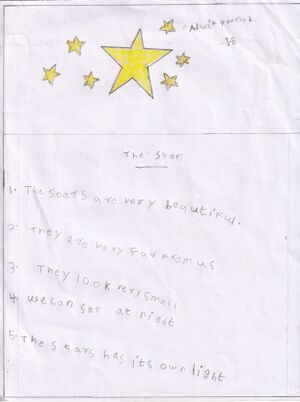 Advik
1-B
The Stars
1. The stars are very beautiful.
2. They are very far from us
3. They look very small
4. we can see at night
5. The stars has its own light